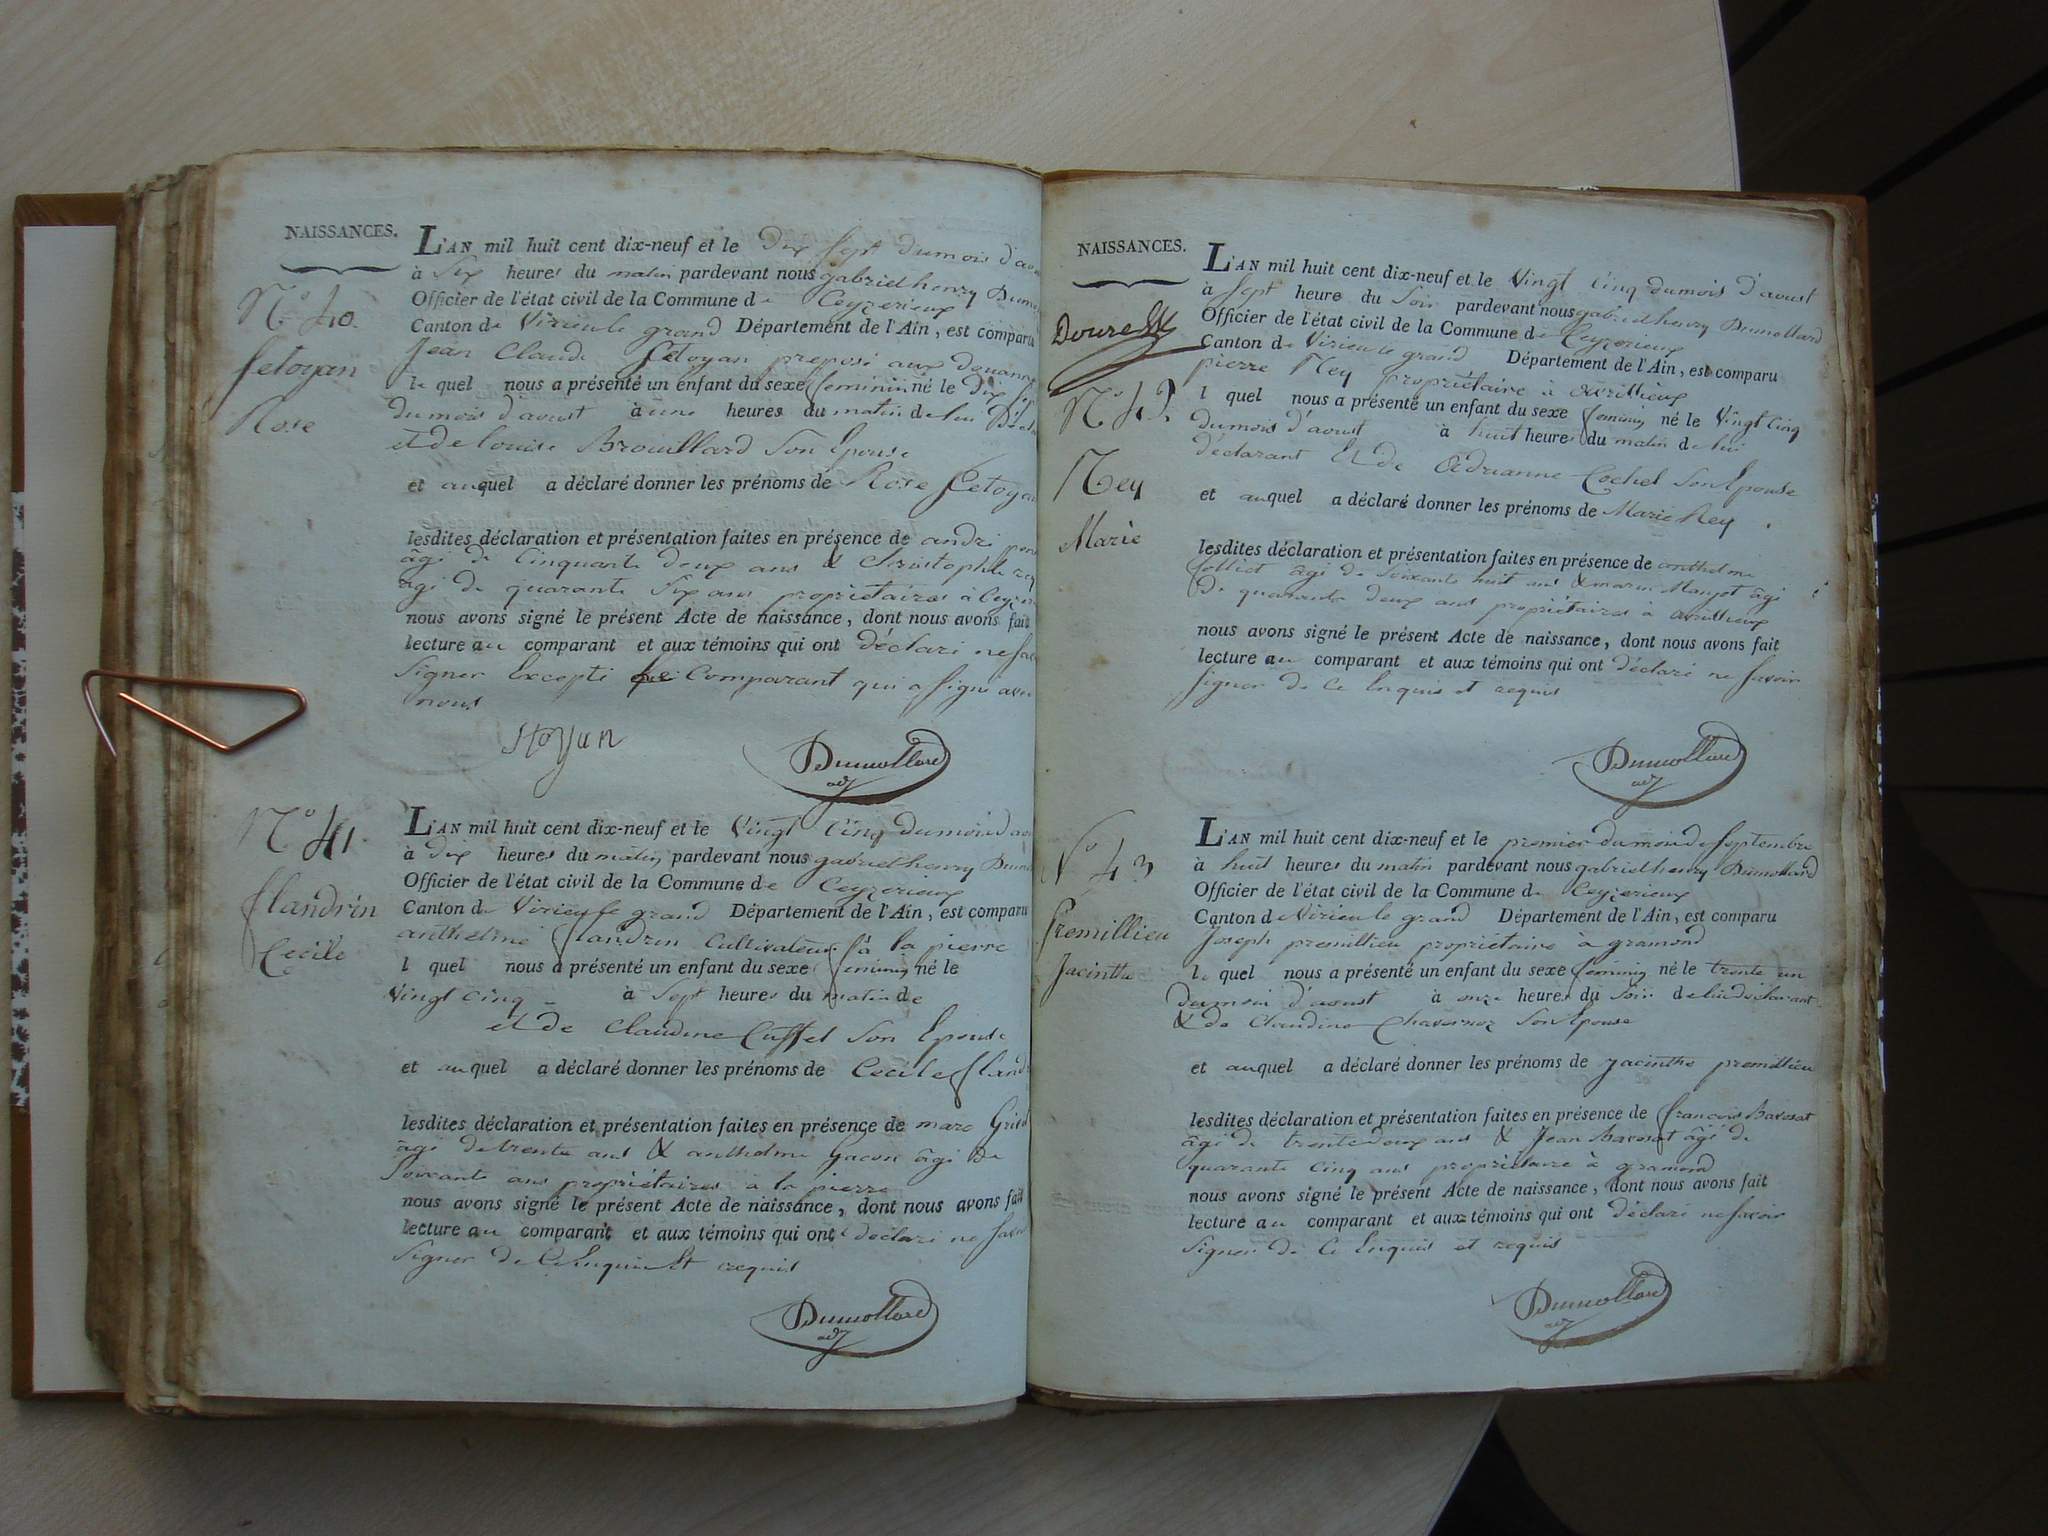 NAISSANCES.
L'AN mil huit cent dix-neuf et le dix Sept dumois d'
à Six heures du matin pardevant nous gabriel henry
Officier de l'état civil de la Commune de Ceyzerieux
Canton de Virieu le grand Département de l'Ain, est comparu
N.o 40.
Jean Claude fetoyan preposé aux
fetoyan
le quel nous a présenté un enfant du sexe feminin né le Dix
dumois d'aoust à une heures du matin de lui
Rose
et de louise Brouillard Son Epouse
et auquel a déclaré donner les prénoms de Rose
lesdites déclaration et présentation faites en présence de andré
âgé de Cinquante deux ans & Christophe
âgé de quarante Six ans propriétaires à
nous avons signé le présent Acte de naissance, dont nous avons fait
lecture au comparant et aux témoins qui ont déclaré ne
Signer Excepté Comparant qui a Signé avec
nous
Dumollard
adj
N.o 41.
L'AN mil huit cent dix-neuf et le Vingt Cinq dumois d
à dix heures du matin pardevant nous gabriel henry
Officier de l'état civil de la Commune de Ceyzerieux
flandrin
Canton de Virieu le grand Département de l'Ain, est comparu
anthelme flandrin Cultivateur à la pierre
Cecile
l quel nous a présenté un enfant du sexe feminin né le
Vingt Cinq à Sept heures du matin de
et de Claudine Cuffet Son Epouse
et auquel a déclaré donner les prénoms de Cecile
lesdites déclaration et présentation faites en présence de marc
âgé de trente ans & anthelme Gacon âgé de
Soixante ans propriétaires à la pierre
nous avons signé le présent Acte de naissance, dont nous avons fait
lecture au comparant et aux témoins qui ont déclaré ne
Signer de Ce Enquis Et requis
Dumollard
adj
NAISSANCES.
L'AN mil huit cent dix-neuf et le Vingt Cinq dumois d'aoust
à Sept heure du Soir pardevant nous gabriel henry Dumollard
Officier de l'état civil de la Commune de Ceyzerieux
Canton de Virieu le grand Département de l'Ain, est comparu
pierre Rey propriétaire à avrillieux
N.o 42
l quel nous a présenté un enfant du sexe feminin né le Vingt Cinq
dumois d'aoust à huit heures du matin de lui
déclarant Et de Adrianne Cochet Son Epouse
Rey
et auquel a déclaré donner les prénoms de Marie Rey
Marie
lesdites déclaration et présentation faites en présence de anthelme
âgé de Soixante huit ans & marin âgé
De quarante deux ans propriétaires à avrillieux
nous avons signé le présent Acte de naissance, dont nous avons fait
lecture au comparant et aux témoins qui ont déclaré ne Savoir
Signer de Ce Enquis et requis
Dumollard
adj
L'AN mil huit cent dix-neuf et le premier du mois de Septembre
à huit heures du matin pardevant nous gabriel henry Dumollard
N.o 43
Officier de l'état civil de la Commune de Ceyzerieux
Canton de Virieu le grand Département de l'Ain, est comparu
Premillieu
Joseph premillieu propriétaire à gramond
Jacinthe
le quel nous a présenté un enfant du sexe feminin né le trente un
dumois d'aoust à onze heures du Soir de lui déclarant
& de Claudine Chavernoz Son Epouse
et auquel a déclaré donner les prénoms de jacinthe premillieu
lesdites déclaration et présentation faites en présence de françois Bavosat
âgé de trente deux ans & Jean Bavosat âgé de
quarante Cinq ans propriétaire à gramond
nous avons signé le présent Acte de naissance, dont nous avons fait
lecture au comparant et aux témoins qui ont déclaré ne Savoir
Signer de Ce Enquis et requis
Dumollard
adj